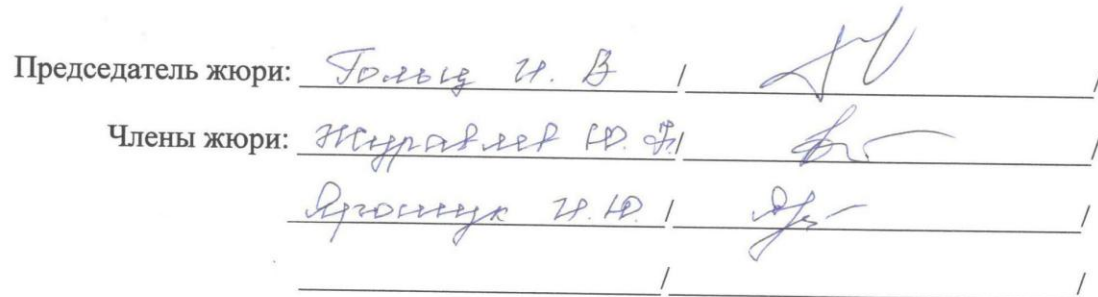 Председатель жюри: Гольц И. В / /
Члены жюри: Журавлев Ю. /
Ярощук И. Ю. / /
/ /